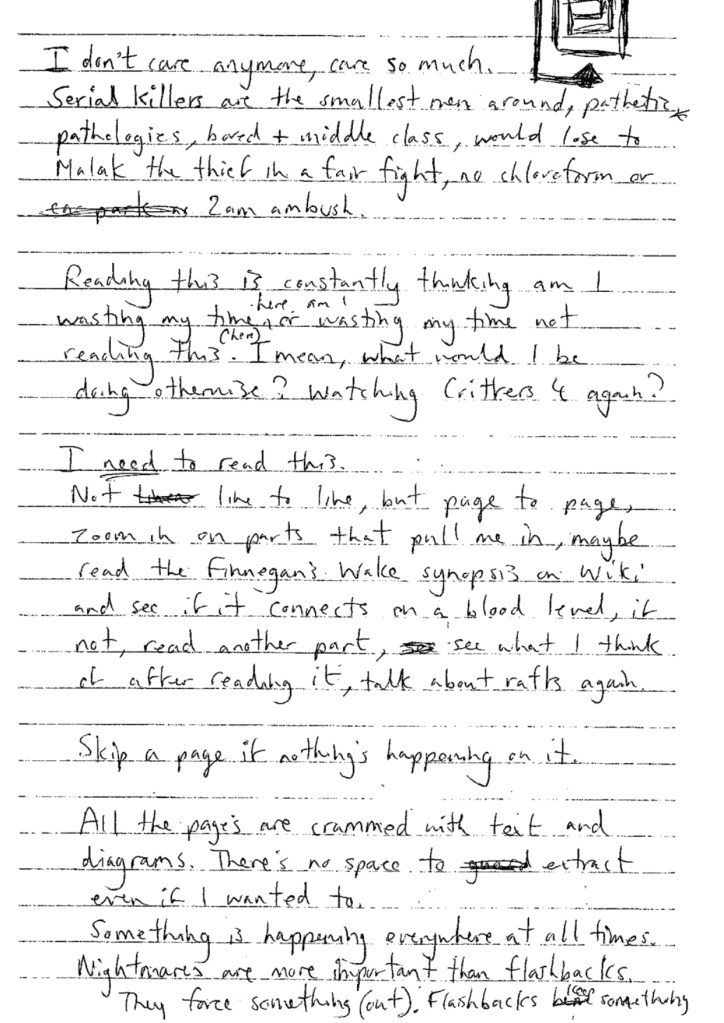 I don't care anymore, care so much.
Serial killers are the smallest men around, pathetic
pathologies, bored + middle class, would lose to
Malak the thief in a fair fight, no chloroform or
2am ambush.
Reading this is constantly thinking am I
here am I
wasting my time, or wasting my time not
(here)
reading this. I mean, what would I be
doing otherwise? Watching Critters 4 again?
I need to read this.
Not line to line, but page to page,
zoom in on parts that pull me in, maybe
read the Finnegan's Wake synopsis on Wiki
and see if it connects on a blood level, if
not, read another part, see what I think
of after reading it, talk about rafts again.
Skip a page if nothing's happening on it.
All the page's are crammed with text and
diagrams. There's no space to extract
even if I wanted to.
Something is happening everywhere at all times.
Nightmares are more important than flashbacks.
They force something (out). Flashbacks keep something